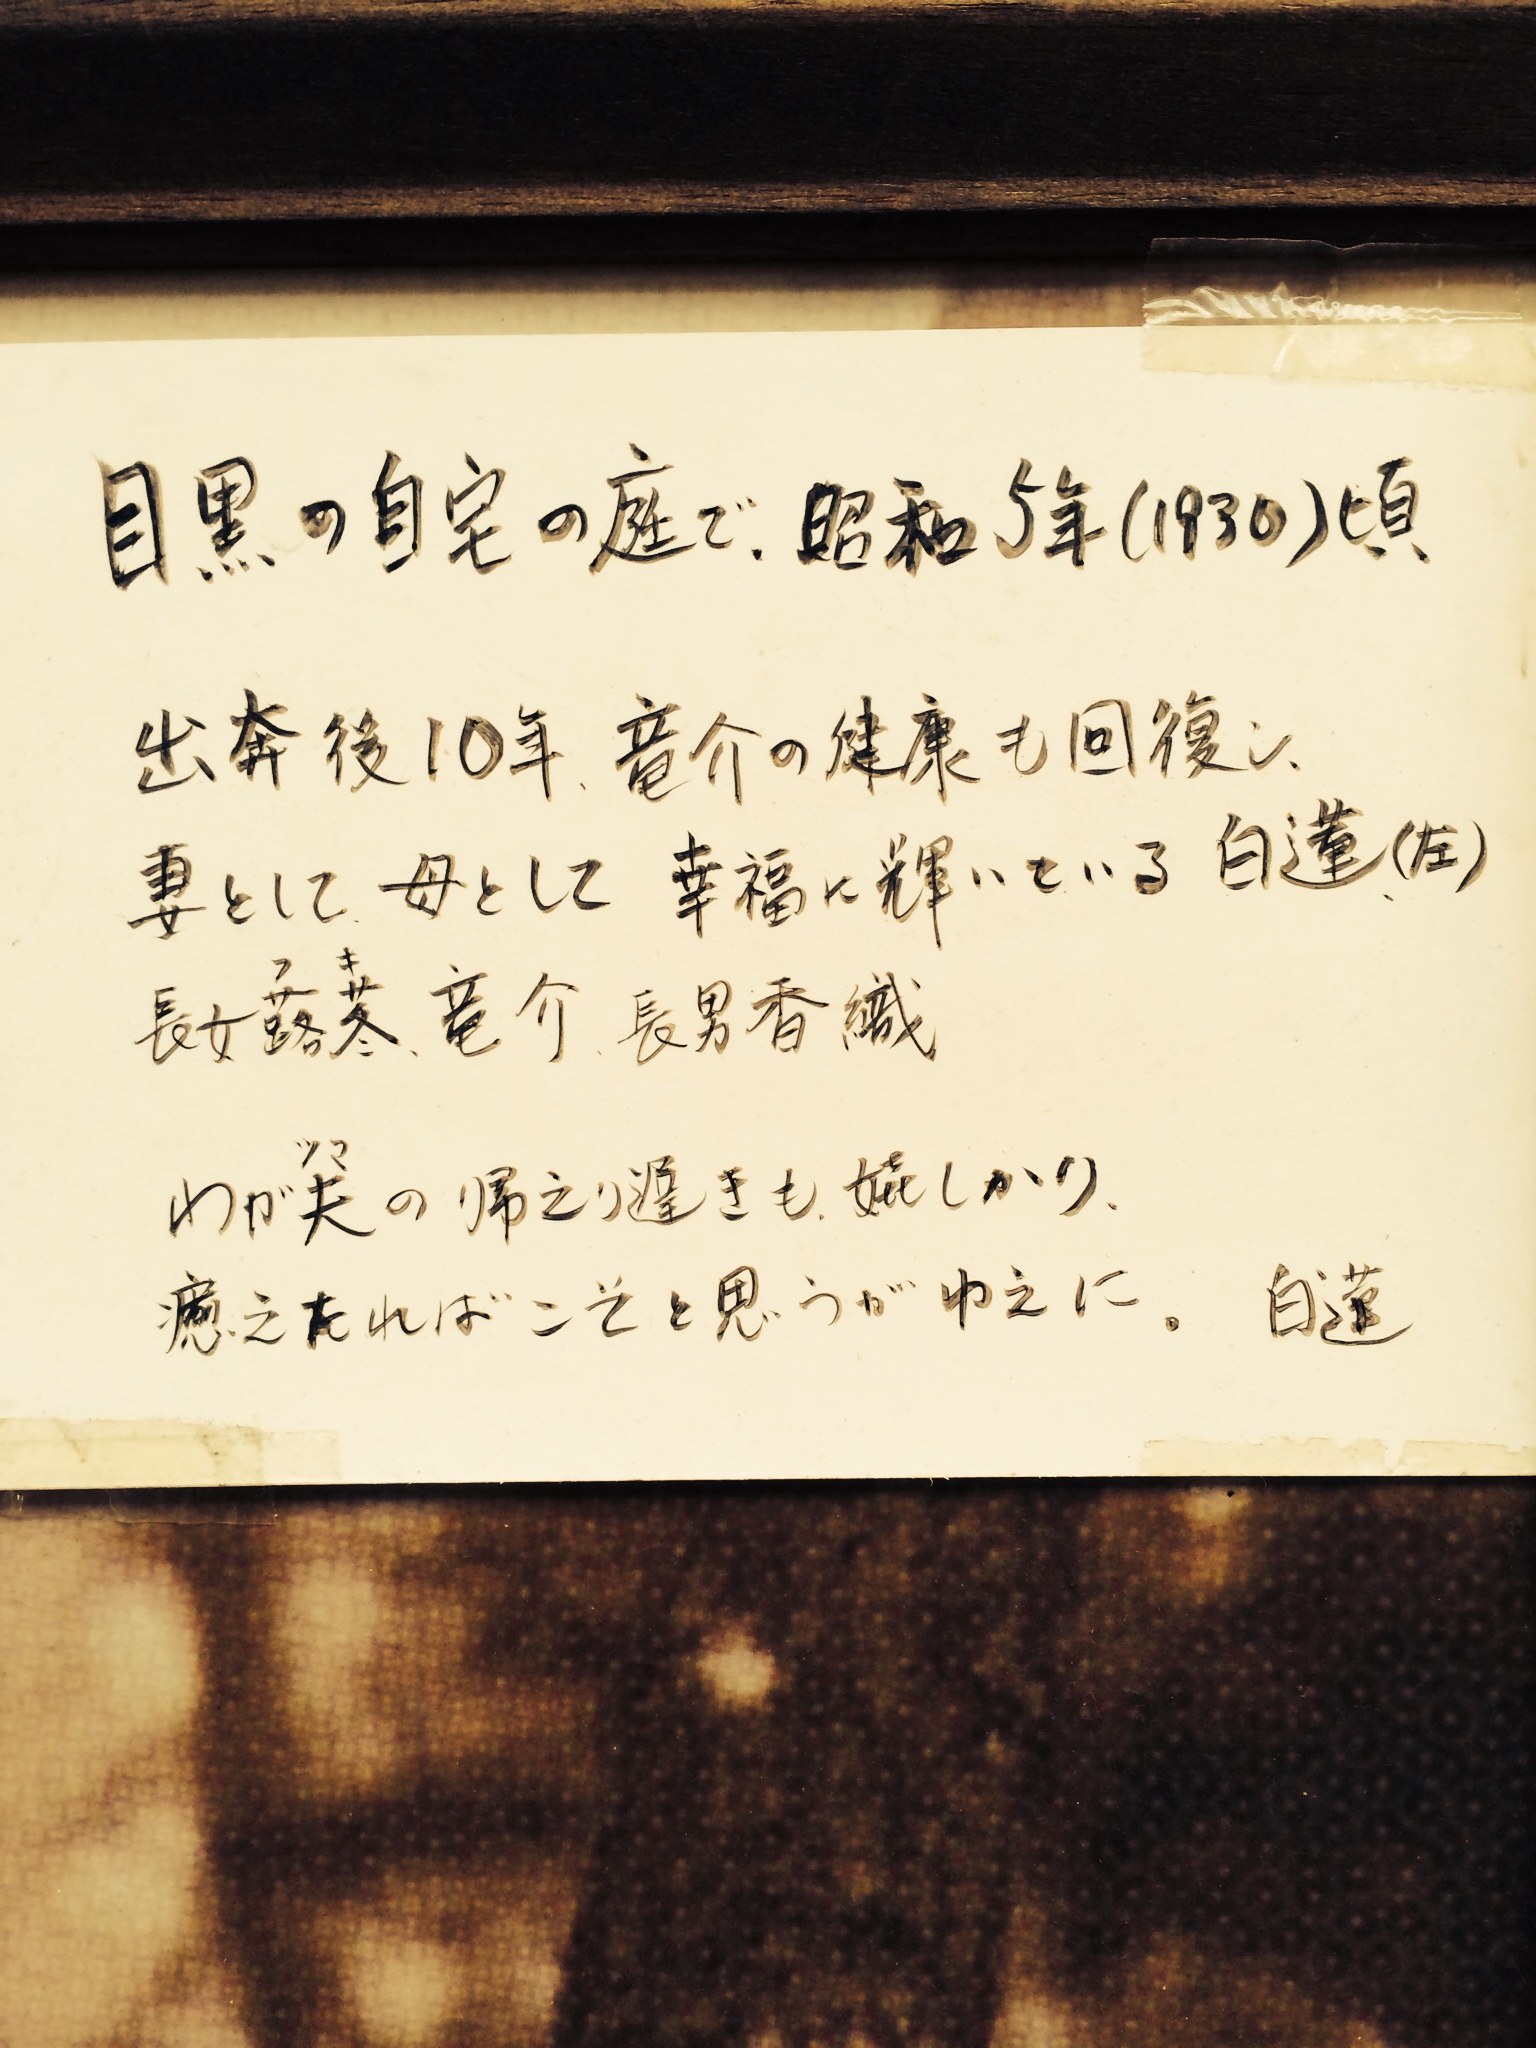 目黒の自宅の庭で、昭和5年(1930)頃
出奔後10年、竜介の健康も回復し、
妻として、母として 幸福に輝いている 白蓮、(左)
フ キ
長女蕗苳、竜介、長男香織
ツマ
わが夫の帰えり遅きも、嬉しかり、
癒えたればこそと思うがゆえに。 白蓮